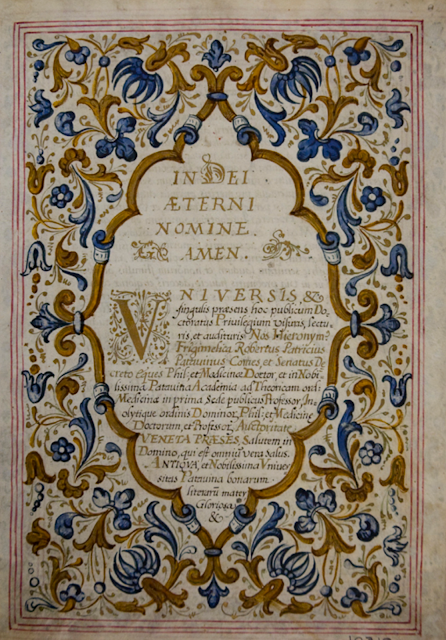 IN DEI
ÆTERNI
NOMINE
AMEN.
VNIVERSIS, &
singulis præsens hoc publicum Do,
ctoratus Privilegium visuris, lectu,
ris, et audituris Nos Hieronym9
Frigimelica Robertus Patricius
Patavinus Comes, et Senatus De
creto Eques Phil., et Medicinæ Doctor, et in Nobi,
lissima Patavina Academia ad Theoricam ord.
Medicinæ in prima Sede publicus Professor, In,
clytique ordinis Dominor. Phil., et Medicinæ
Doctorum, et Professor. Auctoritate
VENETA PRÆSES, Salutem in
Domino, qui est omniũ vera salus.
ANTIQVA, et Nobilissima Vniver
sitas Patavina bonarum
literarũ mater
Gloriosa
&